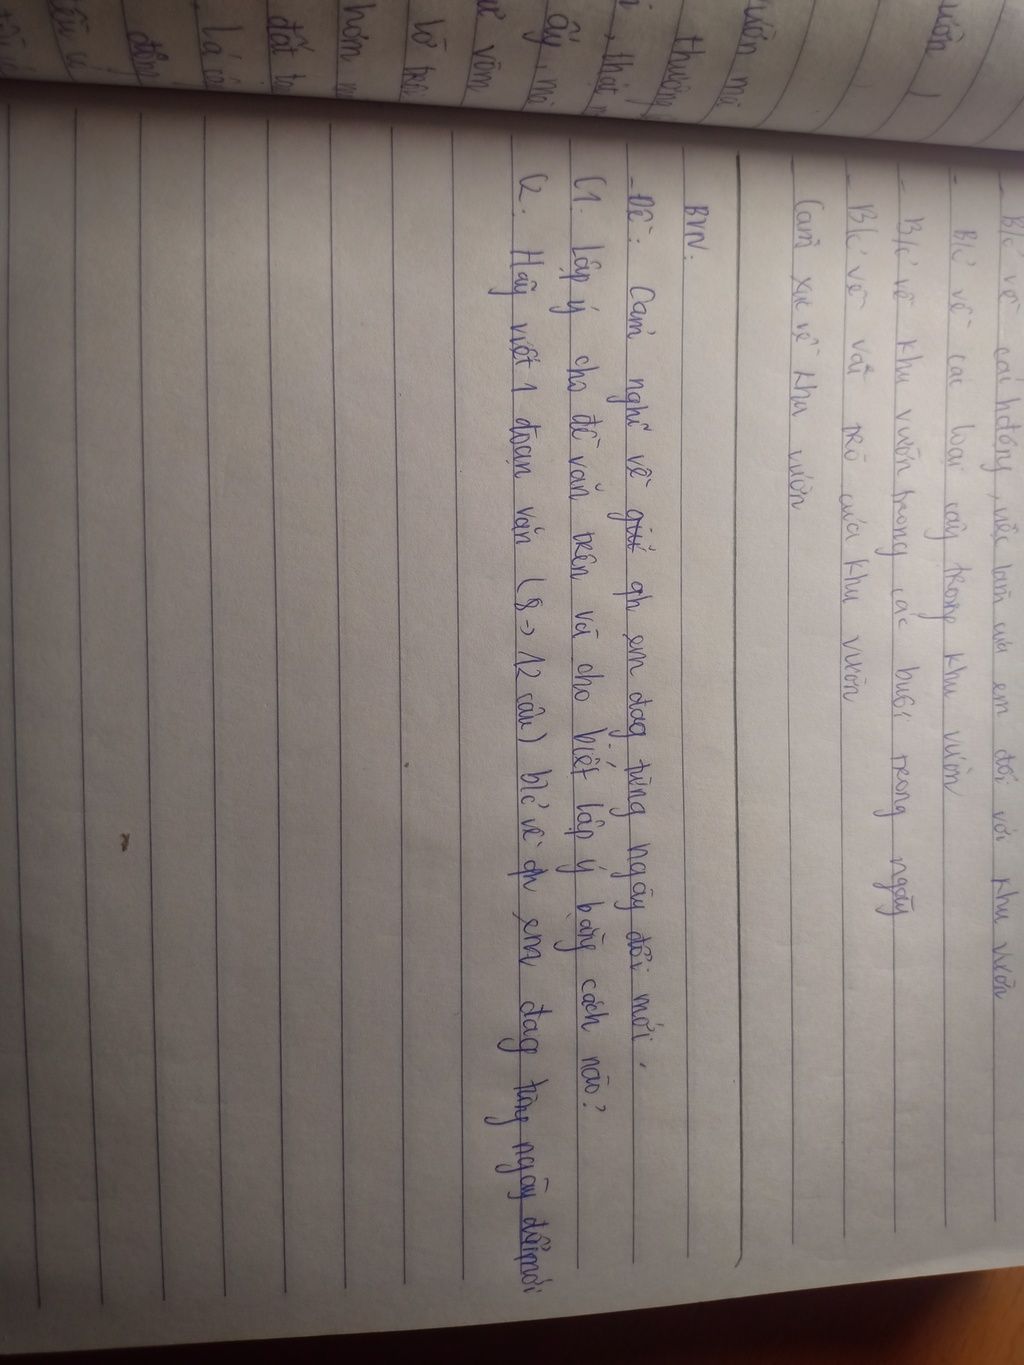 - B/c' về các hđộng, việc làm của em đối với khu vườn
- B/c' về các loại cây trong khu vườn
- B/c' về khu vườn trong các buổi trong ngày
- B/c' về vai trò của khu vườn
Cảm xúc về khu vườn
BVN.
- Đề: Cảm nghĩ về qh em đag từng ngày đổi mới.
C1. Lập ý cho đề văn trên và cho biết lập ý bằng cách nào?
C2. Hãy viết 1 đoạn văn (8 -> 12 câu) b/c' về qh em đag từng ngày đổi mới
ườn
vườn mà
thường
, thật
ấy, mà
vòm
đất
lá